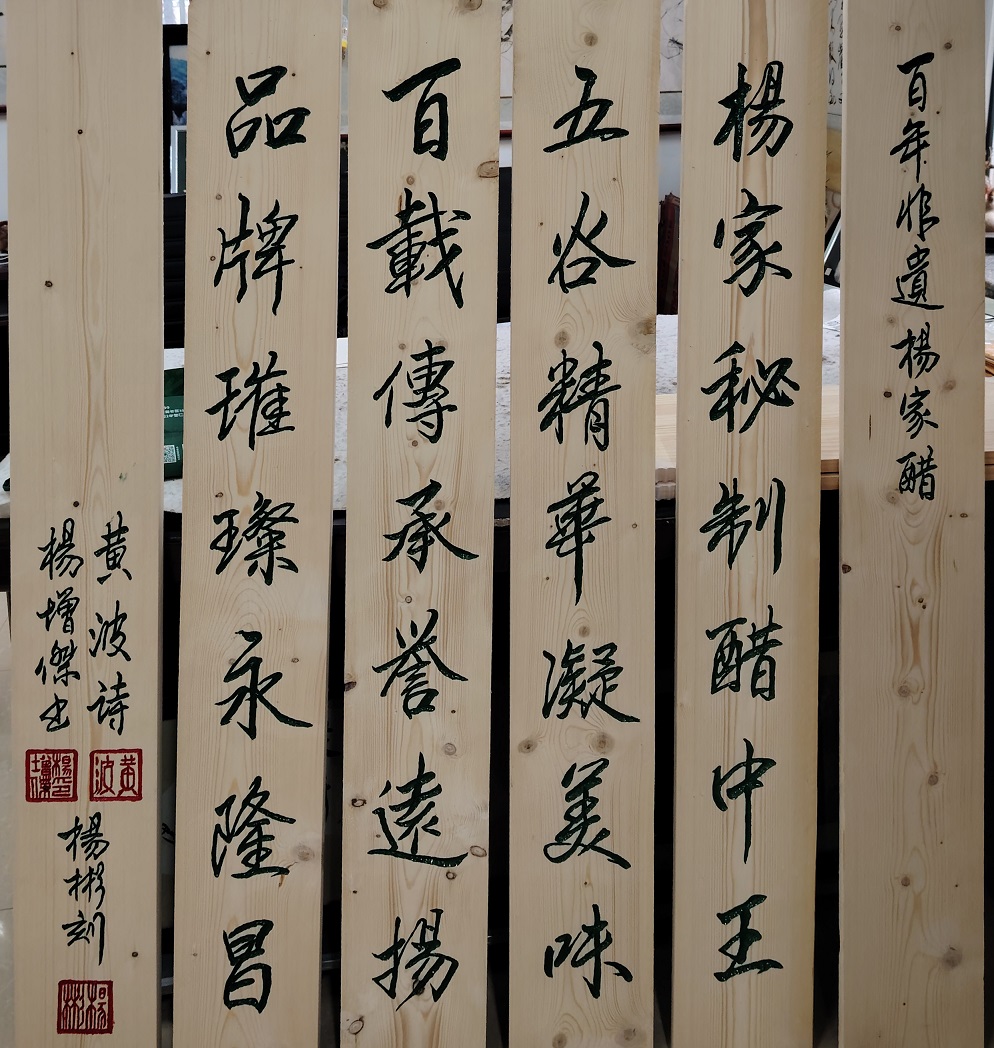 百年非遺楊家醋
楊家秘制醋中王
五谷精華凝美味
百載傳承誉遠揚
品牌璀璨永隆昌
黄波詩
楊增傑书
黄波
楊彬刻
楊彬